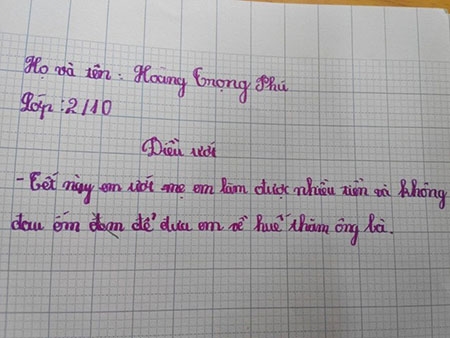 Họ và tên : Hoàng Trọng Phú
Lớp : 2/10
Điều ước
- Tết này em ước mẹ em làm được nhiều tiền và không
đau ốm đạn để đưa em về huế thăm ông bà.